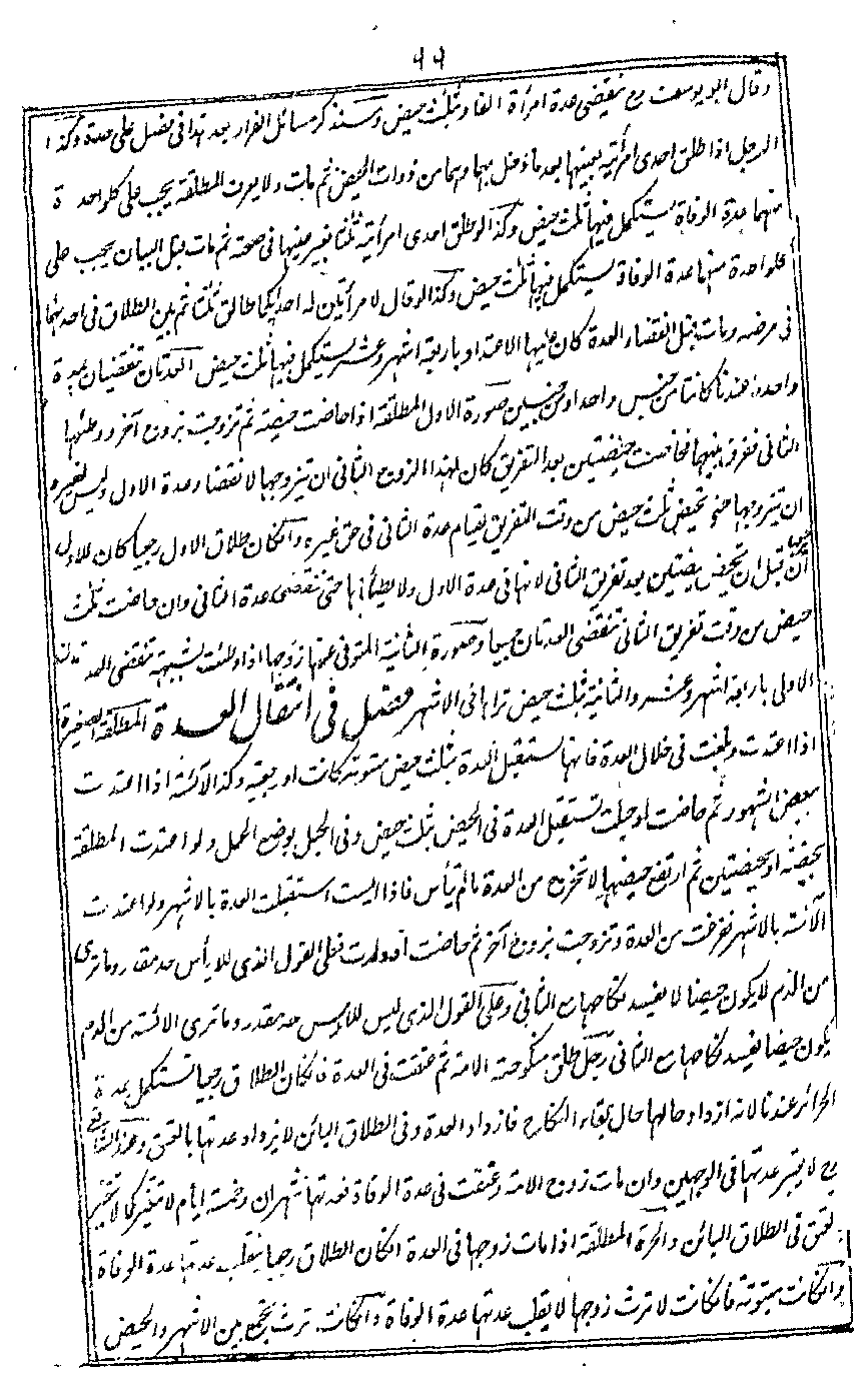 ٩٩
وقال ابو يوسف رح تنقضى عدة امرأة الفار بثلث حيض وسنذكر مسائل الفرار بعد هذا فى فصل على حدة وكذا
الرجل اذا طلق احدى امرأتيه بعينها بعد ما دخل بهما وهما من ذوات الحيض ثم مات ولا يعرف المطلقة يجب على كل واحدة
منهما عدة الوفاة يستكمل فيها ثلث حيض وكذا لو طلق احدى امرأتيه ثلثا بغير عينها فى صحته ثم مات قبل البيان يجب على
كل واحدة منهما عدة الوفاة يستكمل فيها ثلث حيض وكذا لو قال لامرأتين له احدٰيكما طالق ثلثا ثم بين الطلاق فى احدٰهما
فى مرضه ومات قبل انقضاء العدة كان عليها الاعتداد باربعة اشهر وعشر يستكمل فيها ثلث حيض العدتان تنقضيان بعدة
واحدة عندنا كانتا من جنس واحد او من جنسين صورة الاول المطلقة اذا حاضت حيضة ثم تزوجت بزوج آخر ووطئها
الثانى ففرق بينهما فحاضت حيضتين بعد التفريق كان لهذا الزوج الثانى ان يتزوجها لانقضاء عدة الاول وليس لغيره
ان يتزوجها حتى تحيض ثلث حيض من وقت التفريق لقيام عدة الثانى فى حق غيره وانكان طلاق الاول رجعيا كان للاول
ان قبل ان تحيض حيضتين بعد تفريق الثانى لانها فى عدة الاول ولا يطأها حتى تنقضى عدة الثانى وان حاضت ثلث
حيض من وقت تفريق الثانى تنقضى العدتان جميعا وصورة الثانية المتوفى عنها زوجها اذا وطئت بشبهة تنقضى العدة
الاولى باربعة اشهر وعشر والثانية بثلث حيض تراها فى الاشهر فصل فى انتقال العدة المطلقة الصغيرة
اذا اعتدت وبلغت فى خلال العدة فانها تستقبل العدة بثلث حيض مبتوتة كانت او رجعية وكذا الآئسة اذا اعتدت
ببعض الشهور ثم حاضت او حبلت تستقبل العدة فى الحيض بثلث حيض وفى الحبل بوضع الحمل ولو اعتدت المطلقة
بحيضة او بحيضتين ثم ارتفع حيضها لا تخرج من العدة ما لم تيأس فاذا ايست استقبلت العدة بالاشهر ولو اعتدت
الآئسة بالاشهر فخرجت من العدة وتزوجت بزوج آخر ثم حاضت او ولدت فعلى القول الذى للاياس حد مقدر وما ترى
من الدم لا يكون حيضا لا يفسد نكاحها مع الثانى وعلى القول الذى ليس للاياس حد مقدر وما ترى الآئسة من الدم
يكون حيضا يفسد نكاحها مع الثانى رجل طلق منكوحته الامة ثم عتقت فى العدة فانكان الطلاق رجعيا تستكمل عدة
الحرائر عندنا لانه ازداد حالها حال بقاء النكاح فازداد العدة وفى الطلاق البائن لا يزداد عدتها بالعتق وعند الشافعى
رح لا يتغير عدتها فى الوجهين وان مات زوج الامة وعتقت فى عدة الوفاة فعدتها شهران وخمسة ايام لا تتغير كما لا تتغير
بالعتق فى الطلاق البائن والحرة المطلقة اذا مات زوجها فى العدة انكان الطلاق رجعيا ينقلب عدتها عدة الوفاة
وانكانت مبتوتة فانكانت لا ترث زوجها لا ينقلب عدتها عدة الوفاة وانكانت ترث تجمع بين الاشهر والحيض